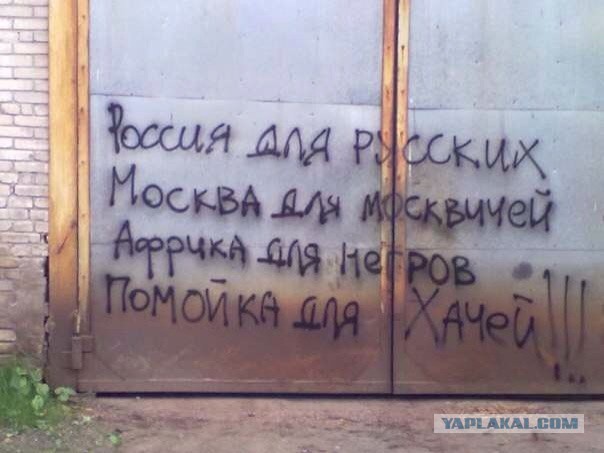 Россия для русских
Москва для москвичей
Африка для негров
Помойка для Хачей!!!
YAPLAKAL.COM